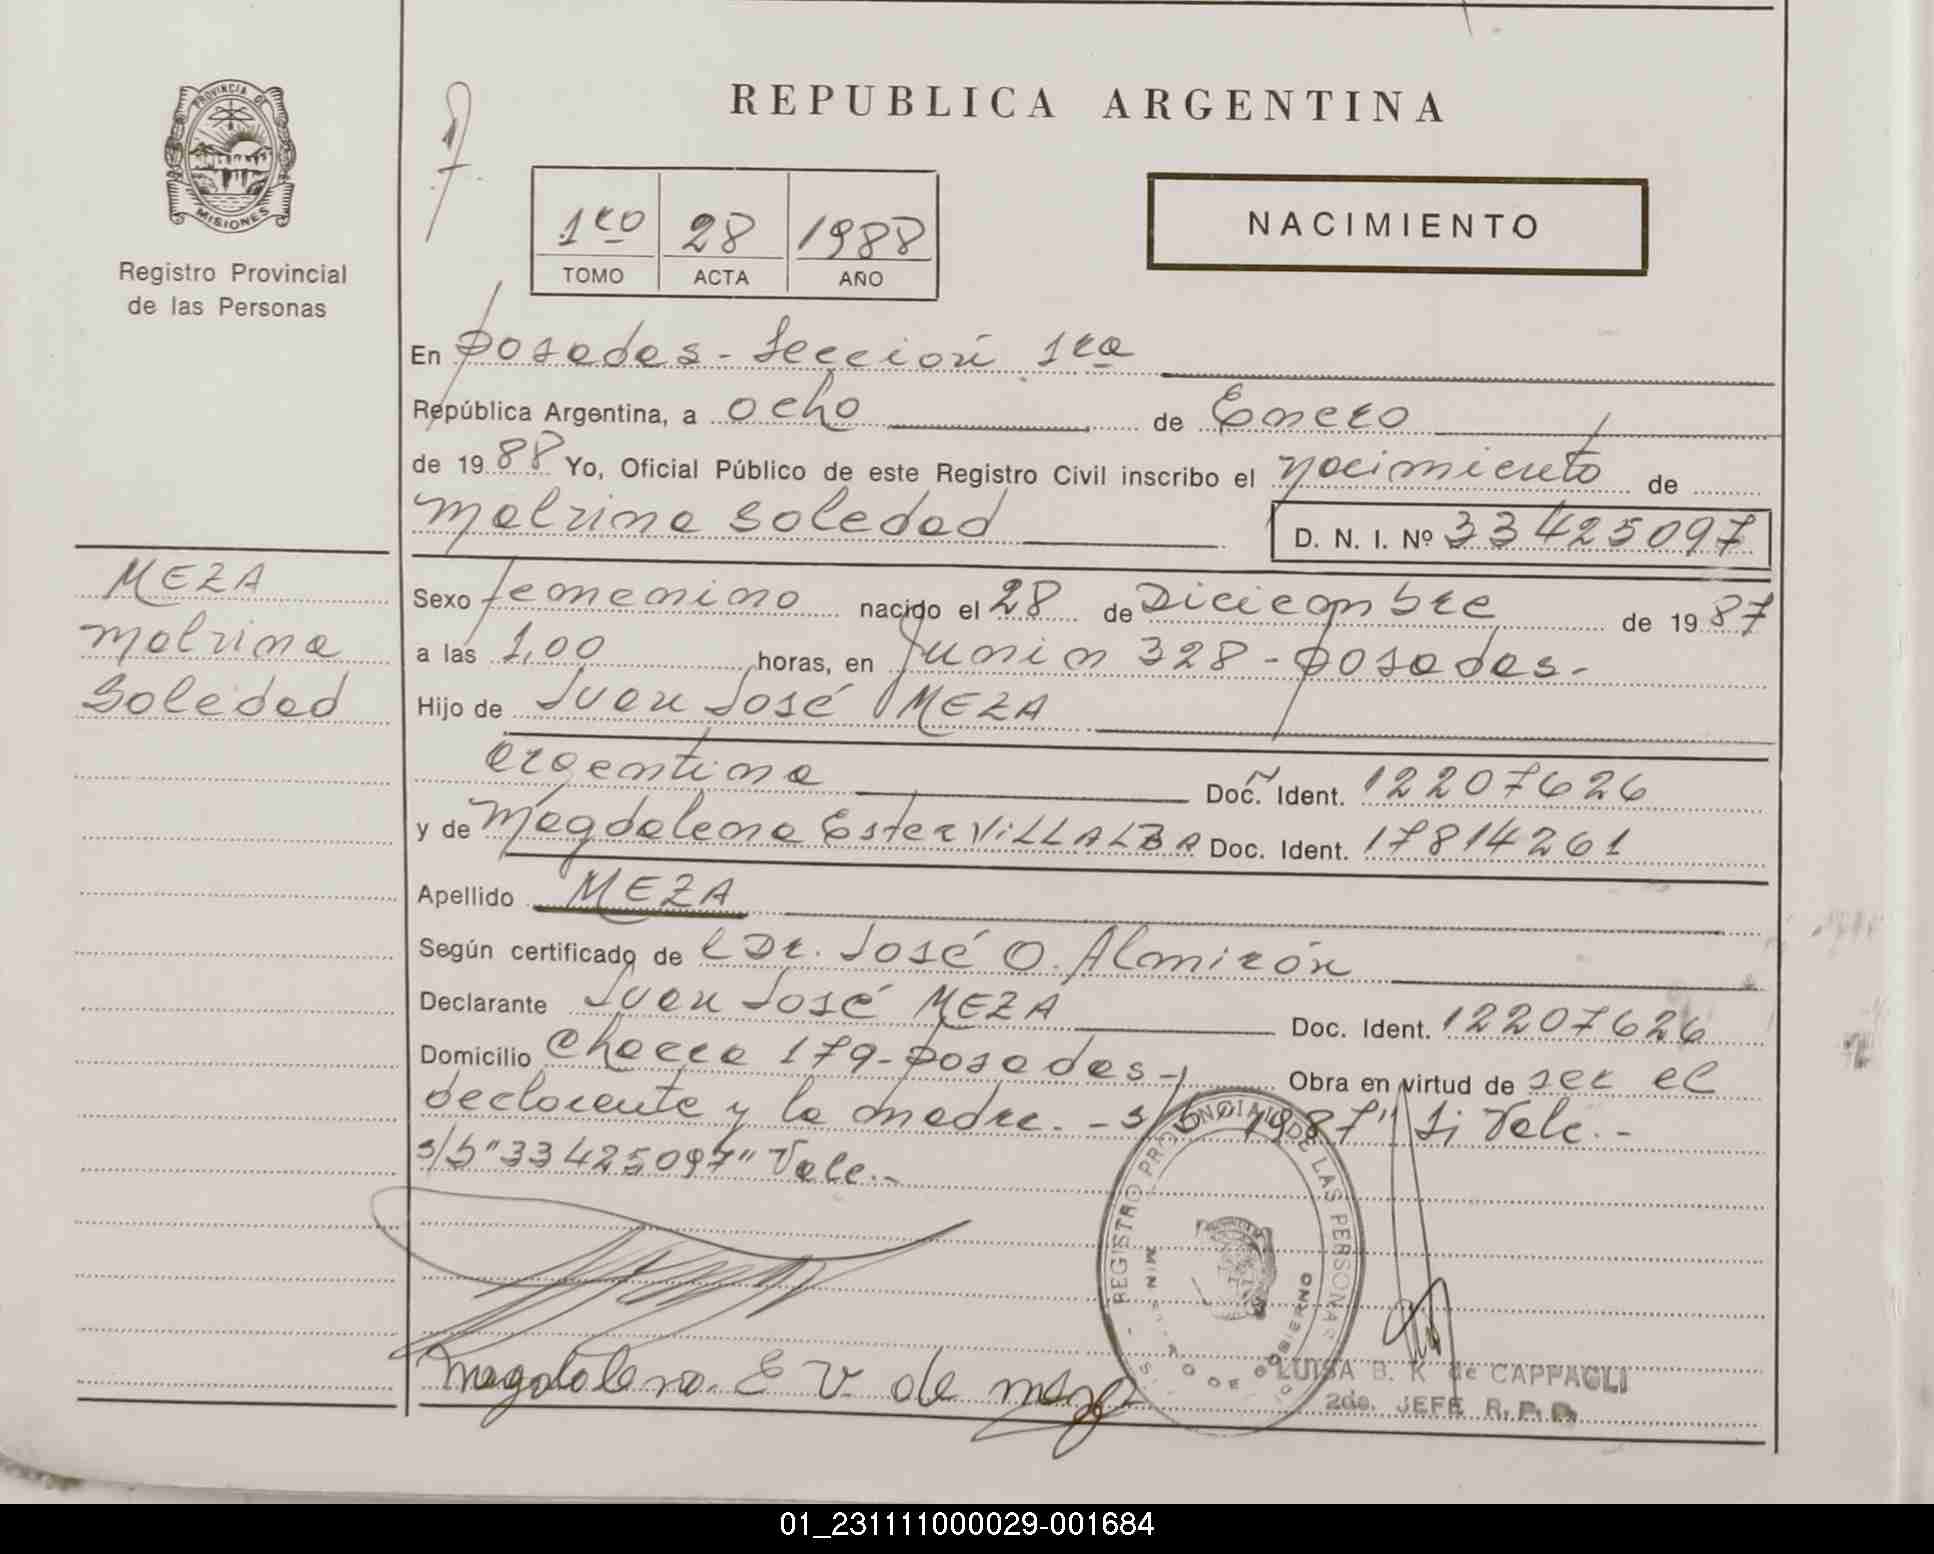 PROVINCIA DE
MISIONES
Registro Provincial
de las Personas
REPUBLICA ARGENTINA
1ro 28 1988
TOMO ACTA AÑO
NACIMIENTO
En Posadas - Sección 1ra
República Argentina, a ocho de Enero
de 1988 Yo, Oficial Público de este Registro Civil inscribo el nacimiento de
Malvina Soledad D. N. I. Nº 33425097
MEZA
Malvina
Soledad
Sexo femenino nacido el 28 de Diciembre de 1987
a las 1,00 horas, en Junin 328 - Posadas.-
Hijo de Juan José MEZA
argentina Doc. Ident. 12207626
y de Magdalena Ester VILLALBA Doc. Ident. 17814261
Apellido MEZA
Según certificado de l Dr. José O. Almirón
Declarante Juan José MEZA Doc. Ident. 12207626
Domicilio Chacra 179 - Posadas - Obra en virtud de ser el
declarante y la madre. - s/b "1987" Si Vale.-
s/b "33425097" Vale.-
REGISTRO PROVINCIAL DE LAS PERSONAS
GOBIERNO
Magdalena E V de Meza
LUISA B. K de CAPPAGLI
2do. JEFE R. P. P.
01_231111000029-001684